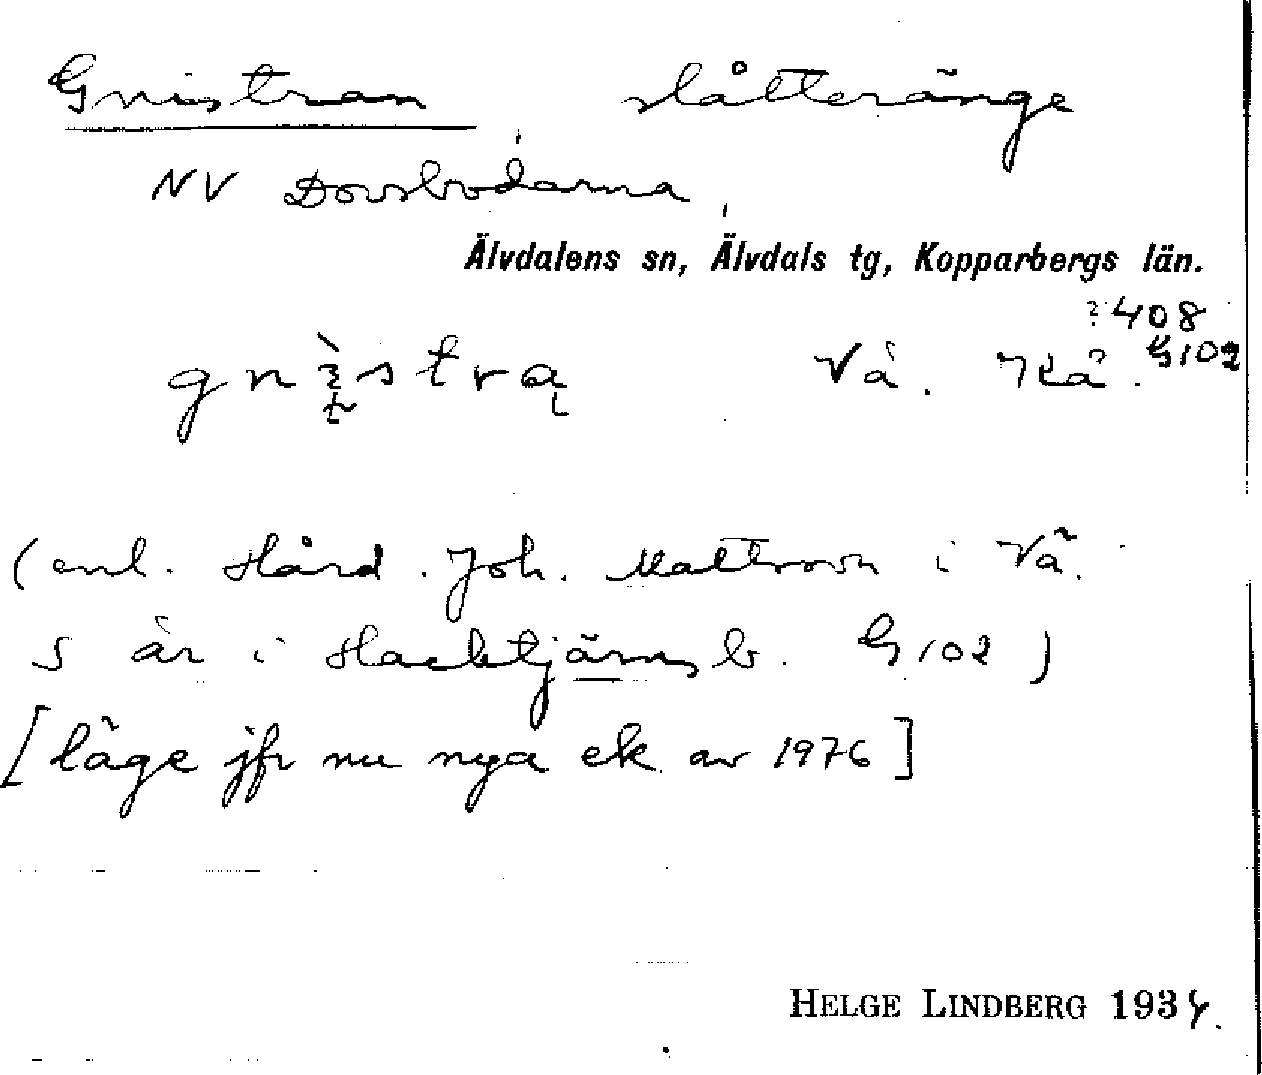 Gnistran slåtteränge
NV Dovsbodarna,
Älvdalens sn, Älvdals tg, Kopparbergs län.
?408
Vå. Kå. G102
(enl. Hård. Joh. Mattsson i Vå.
S är i Hacktjärnsb. G102)
[läge jfr nu nya ek. av 1976]
HELGE LINDBERG 1934.